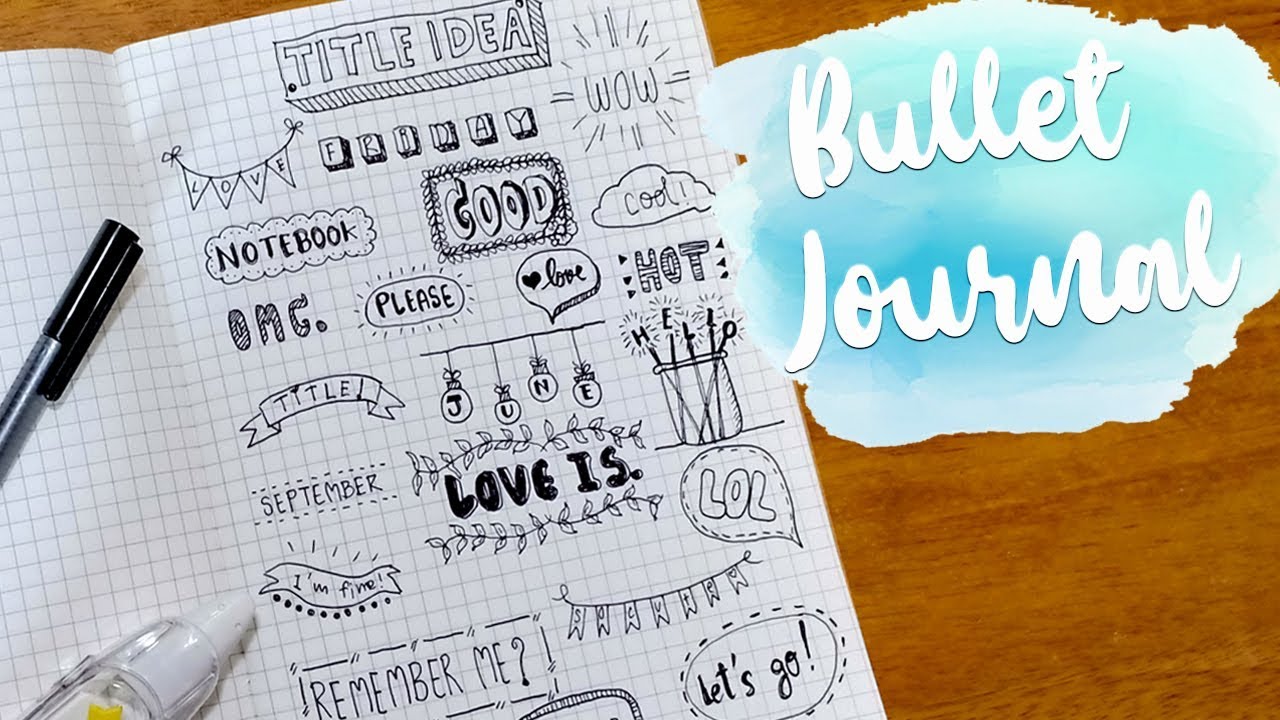 TITLE IDEA
WOW
FRIDAY
LOVE
GOOD
COOL!
NOTEBOOK
HOT
OMG.
PLEASE
love
HELLO
JUNE
TITLE!
LOVE IS.
SEPTEMBER
LOL
I'm fine!
REMEMBER ME?
Let's go!
Bullet
Journal